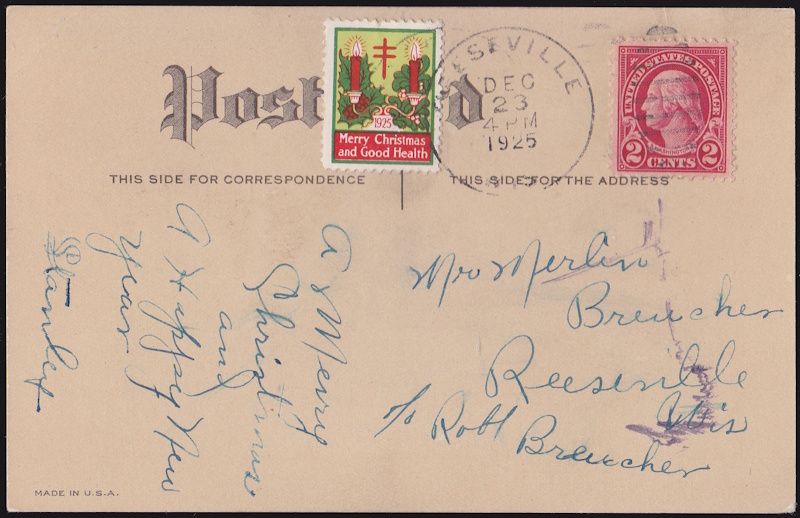 Post Card
REESEVILLE
DEC
23
4 PM
1925
WIS.
1925
Merry Christmas
and Good Health
UNITED STATES POSTAGE
WASHINGTON
2 CENTS 2
THIS SIDE FOR CORRESPONDENCE
THIS SIDE FOR THE ADDRESS
A Merry
Christmas
and
A Happy New
Year
Stanley
Mr Merlin
Breucher
Reeseville
Wis
c/o Robt Breucher
MADE IN U.S.A.